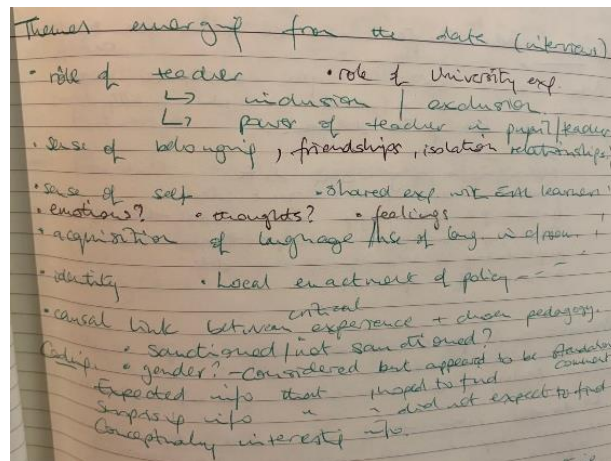 Themes emerging from the data (interviews)
• role of teacher • role of University exp.
↳ inclusion / exclusion
↳ power of teacher in pupil/teacher
• sense of belonging, friendships, isolation relationships
• sense of self • shared exp with EAL learners
• emotions? • thoughts? • feelings
• acquisition of language / use of lang. in
• identity • Local enactment of policy
critical
• causal link between experience + chosen pedagogy.
• sanctioned / not sanctioned?
Coding • gender? - Considered but appeared to be
Expected info that I hoped to find
Surprising info " " did not expect to find
Conceptually interesting info.